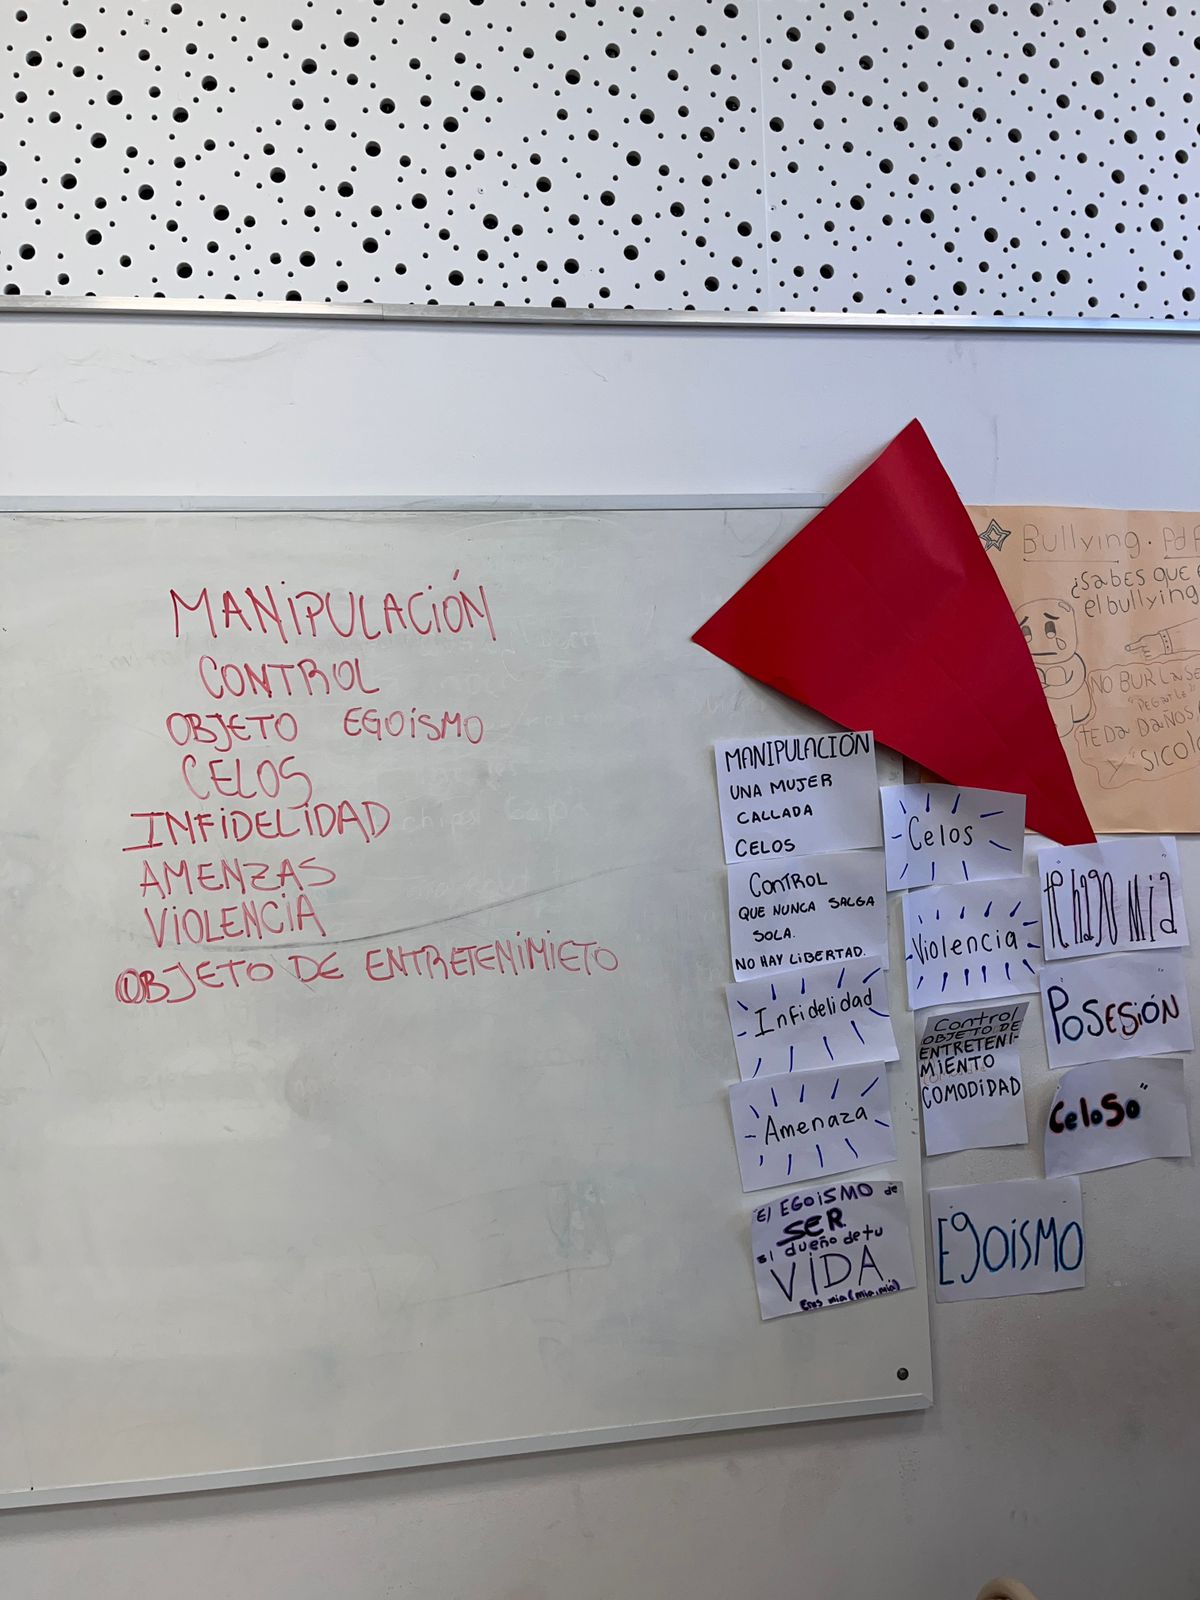 MANIPULACIÓN
CONTROL
OBJETO EGOISMO
CELOS
INFIDELIDAD
AMENZAS
VIOLENCIA
OBJETO DE ENTRETENIMIETO
MANIPULACIÓN
UNA MUJER
CALLADA
CELOS
CONTROL
QUE NUNCA SALGA
SOLA.
NO HAY LIBERTAD.
Infidelidad
Amenaza
El EGOISMO de
SER
el dueño de tu
VIDA
Eres mia (mia, mia)
Celos
Violencia
Control
OBJETO DE
ENTRETENI-
MIENTO
COMODIDAD
EgOISMO
te hago Mia
POSESIÓN
CeloSo"
Bullying.
¿Sabes QUE
el bullying
NO BURLASE
TE Da DaÑOS
Y "SICOLO